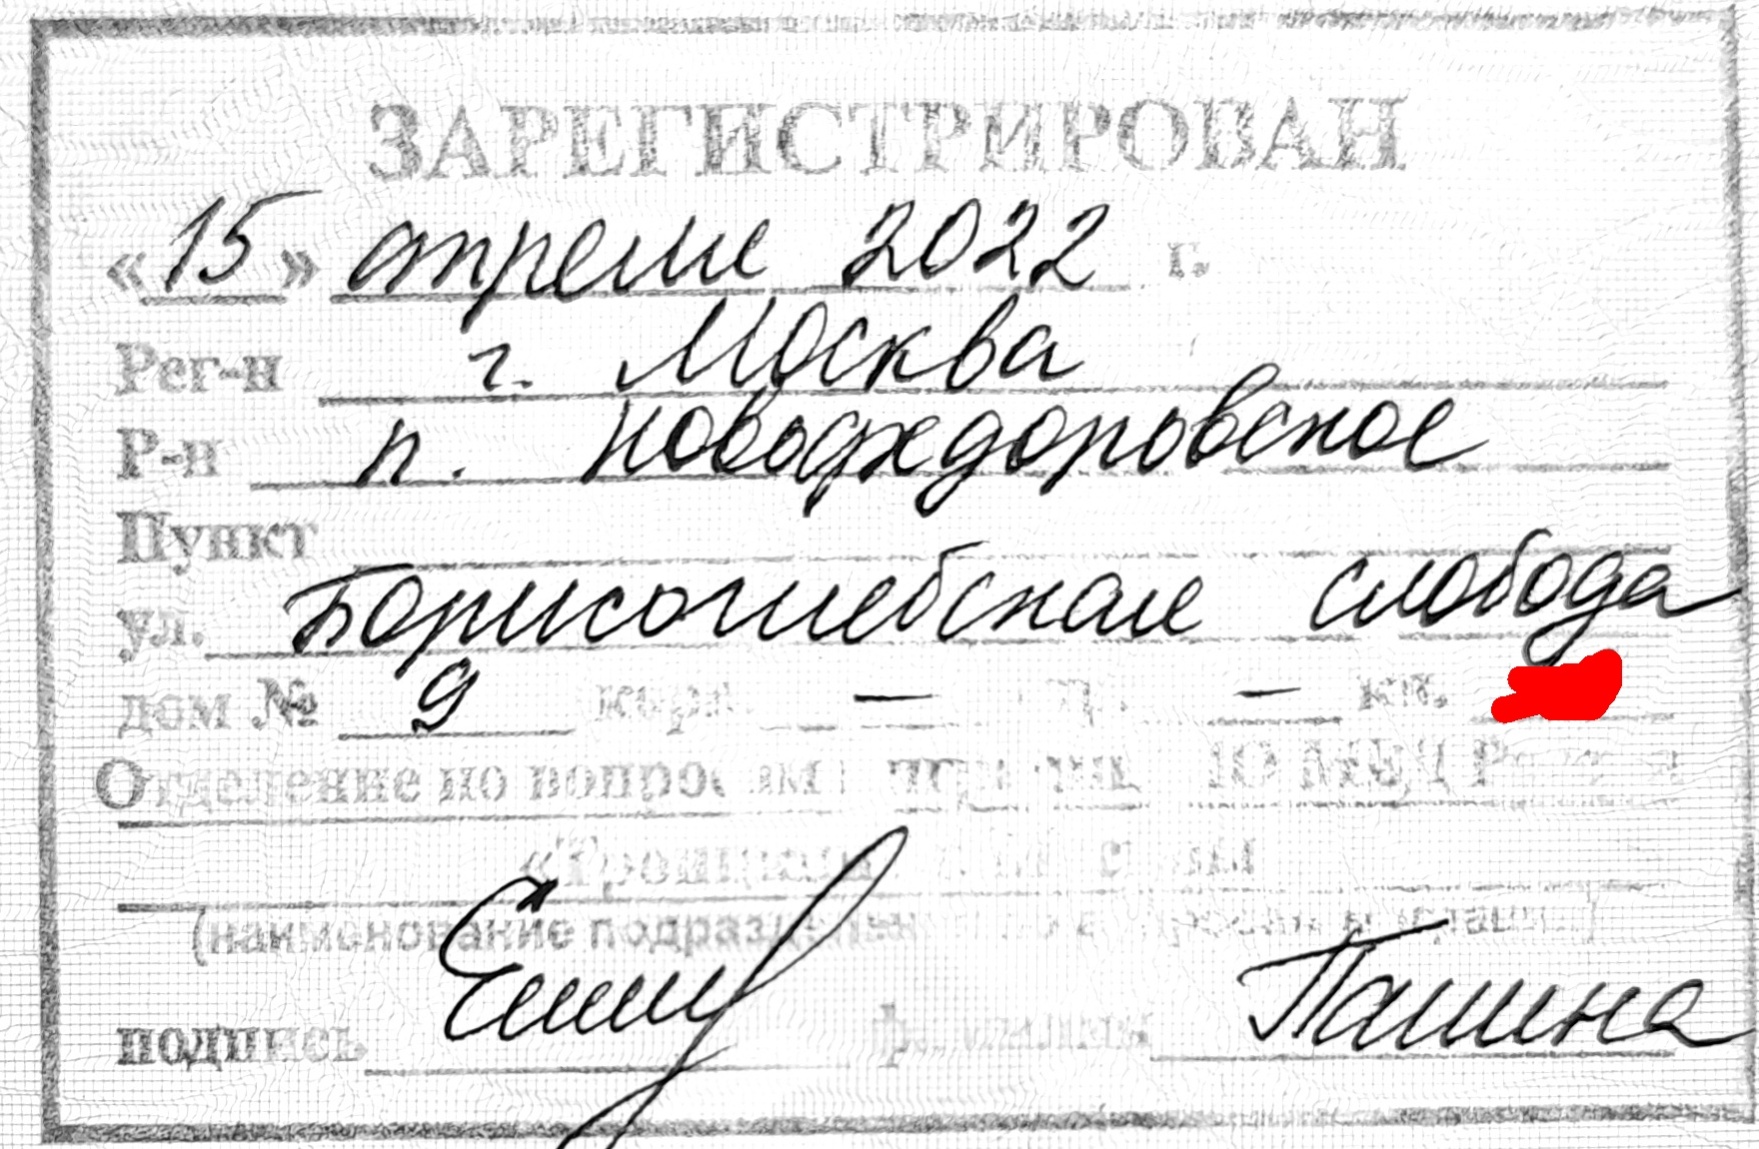 ЗАРЕГИСТРИРОВАН
«15» апреля 2022 г.
Рег-н г. Москва
Р-н п. Новофедоровское
Пункт
ул. Борисоглебская слобода
дом № 9 корп. — — кв.
Отделение по вопросам
«Троицкое»
(наименование подразделения
подпись фамилия Пашина